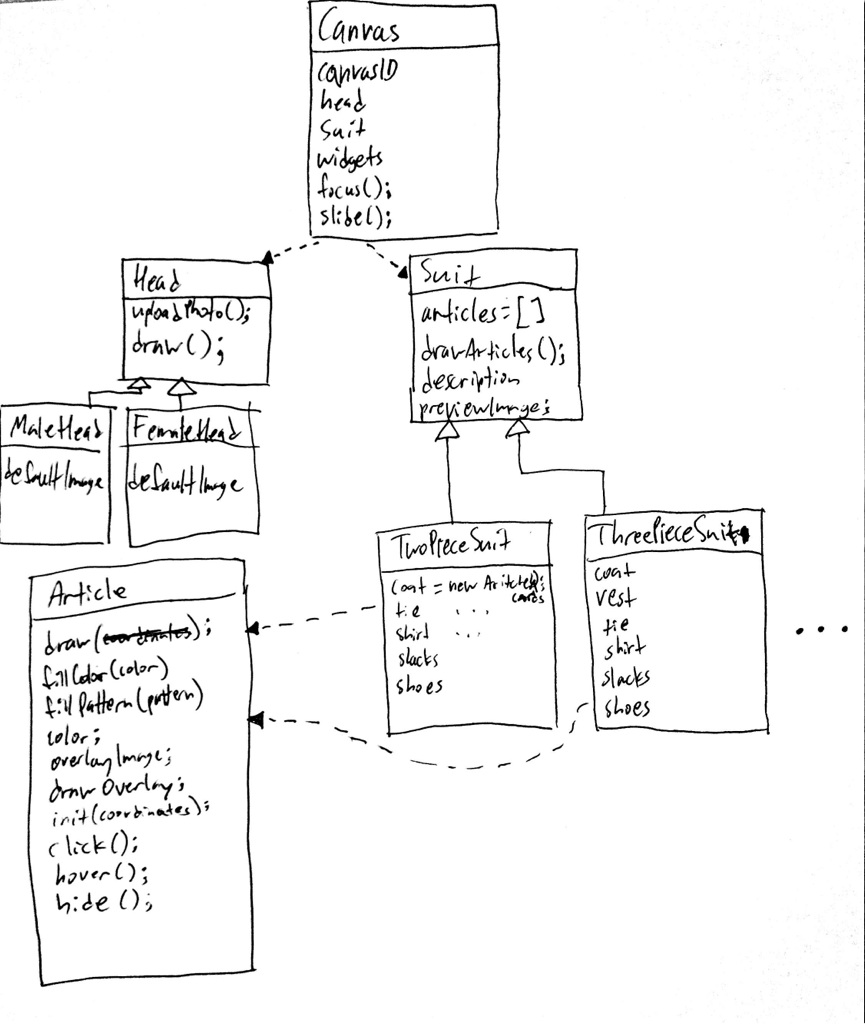 Canvas
canvasID
head
Suit
widgets
focus();
slide();
Head
uploadPhoto();
draw();
MaleHead
defaultImage
FemaleHead
defaultImage
Suit
articles=[]
drawArticles();
description
previewImage;
TwoPieceSuit
coat = new
tie ...
shirt ...
slacks
shoes
ThreePieceSuit
coat
vest
tie
shirt
slacks
shoes
...
Article
draw(coordinates);
fillColor(color)
fillPattern(pattern)
color;
overlayImage;
drawOverlay;
init(coordinates);
click();
hover();
hide();